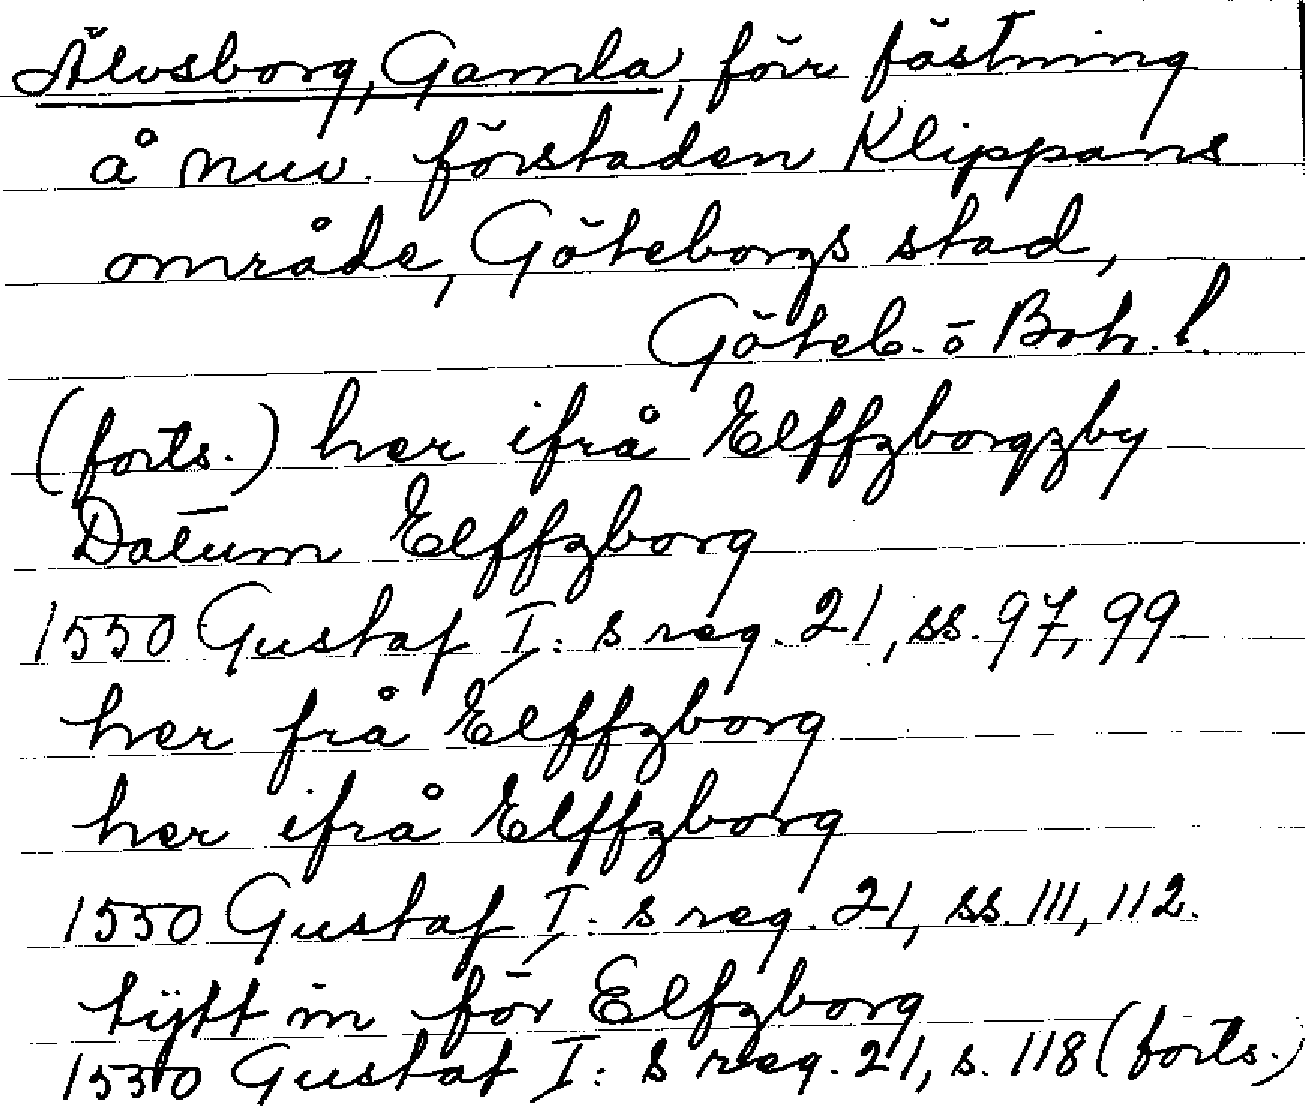 Älvsborg, Gamla, förr fästning
å nuv. förstaden Klippans
område, Göteborgs stad,
Göteb. o Boh. l.
(forts.) her ifrå Elffzborgzby
Datum Elffzborg
1550 Gustaf I: s reg. 21, ss. 97, 99
her frå Elffzborg
her ifrå Elffzborg
1550 Gustaf I: s reg. 21, ss. 111, 112.
tÿtt in för Elfzborg
1550 Gustaf I: s reg. 21, s. 118 (forts.)